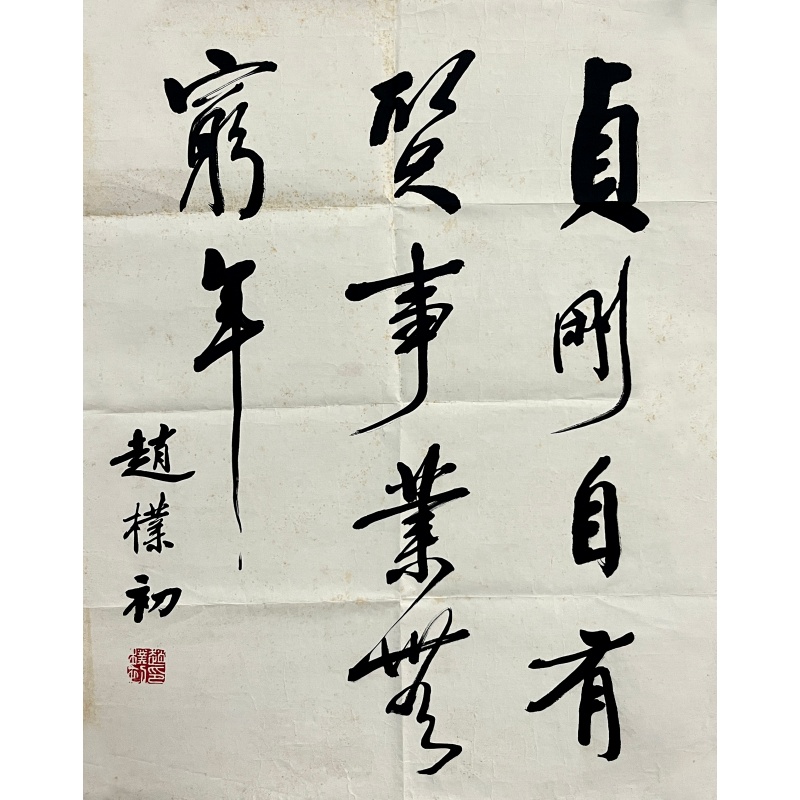 貞剛自有
質事業無
窮年
趙樸初
趙印樸初